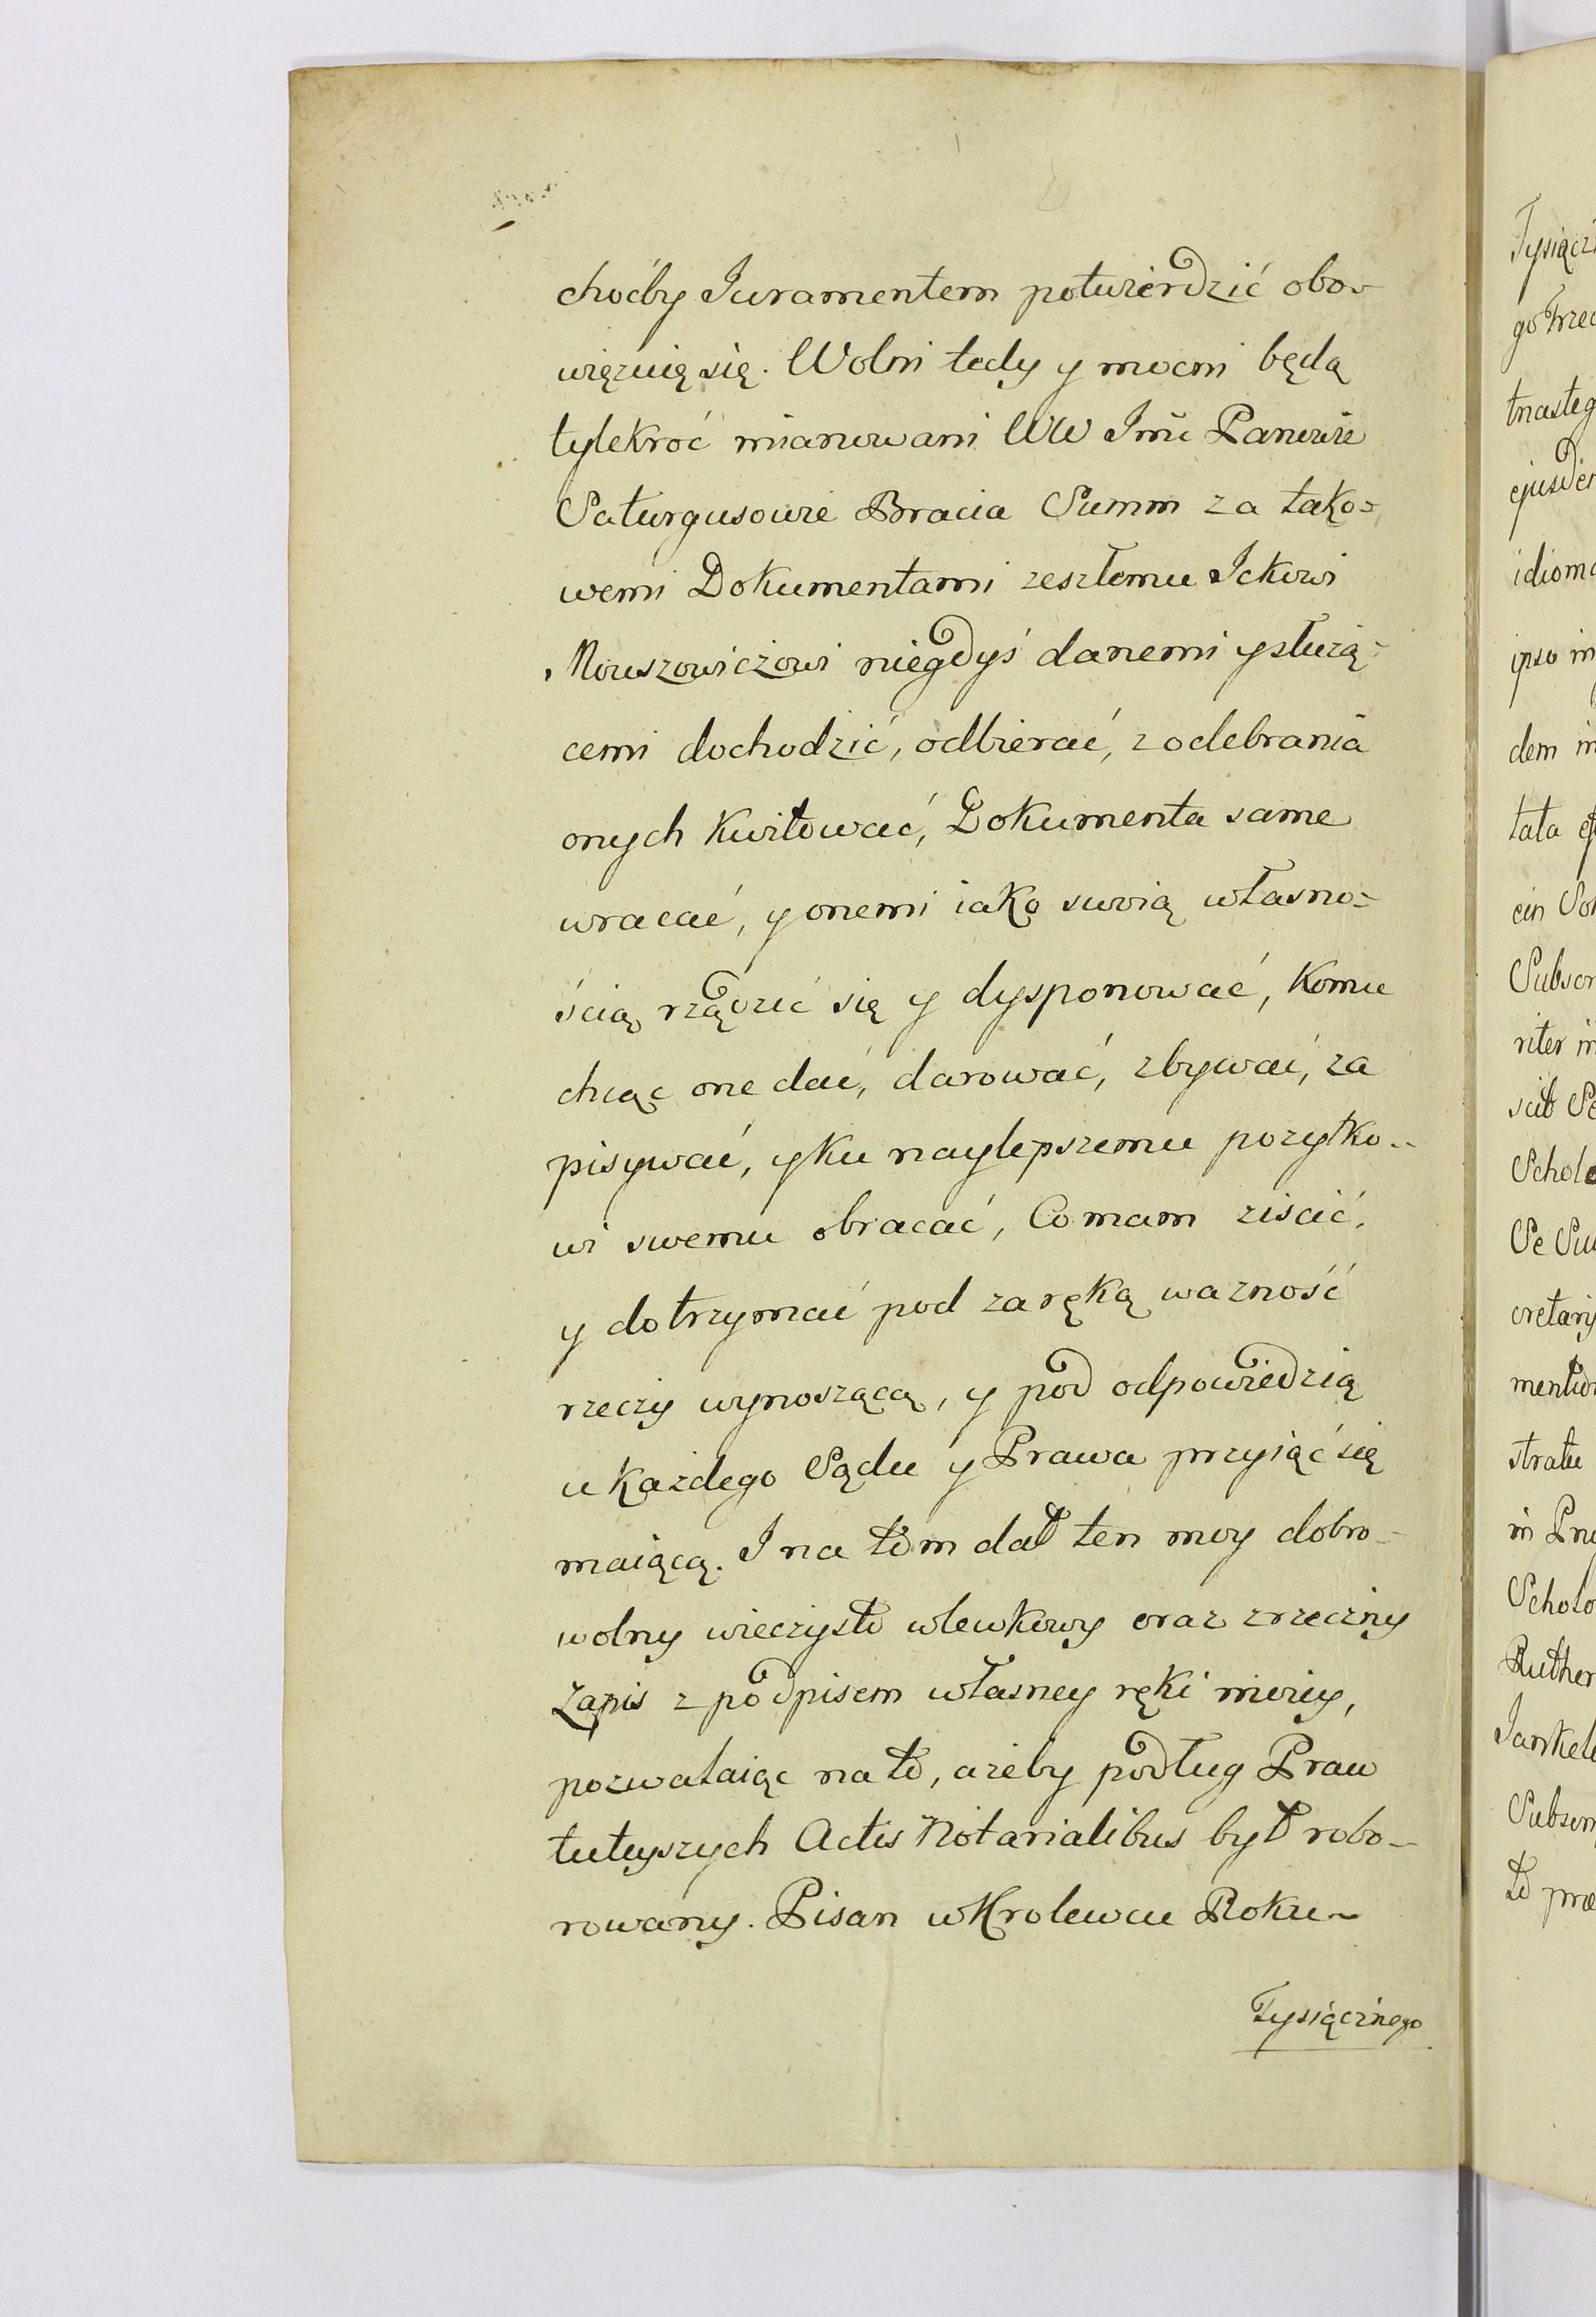 choćby Juramentem potwierdzić obo-
więzuię się. Wolni tedy y mocni będą
tylekroć mianowani WW Imć Panowie
Saturgusowie Bracia Summ za tako-
wemi Dokumentami zeszłemu Ickowi
Mowszowiczowi niegdyś danemi y służą-
cemi dochodzić, odbierać, z odebrania
onych Kwitować, Dokumenta same
wracać, y onemi iako swoią własno-
ścią rządzić się y dysponować, Komu
chcąc one dać, darować, zbywać, za
pisywać, y ku naylepszemu pozytko-
wi swemu obracać, Co mam ziścić,
y dotrzymać pod zaręką wazność
rzeczy wynoszącą, y pod odpowiedzią
u Kazdego Sądu y Prawa przyiąć się
maiącą. I na tom dał ten moy dobro-
wolny wieczysto wlewkowy oraz zrzeczny
Zapis z podpisem własney ręki moiey,
pozwalaiąc na to, azeby podług Praw
tuteyszych Actis Notarialibus był robo-
rowany. Pisan w Krolewcu Roku
Tysiącznego
Tysiącz
go Trzec
tnasteg
ejusdem
idioma
ipso in
dem in
tata
ein
Subscr
riter in
sub Se
Schol
Se Su
cretary
mentor
stratu
in
Scholo
Ruthen
Jankel
Subscr
to præ